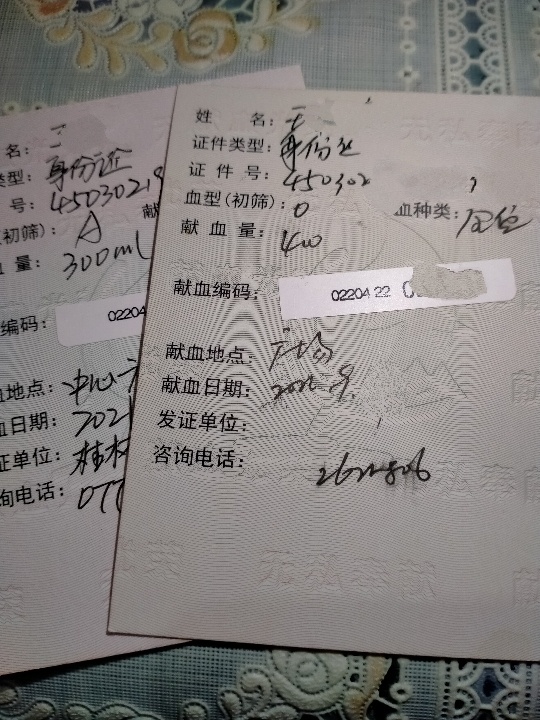 名：
类型：身份证
号：4503021
初筛)：A 献
量：300ml
编码：02204
血地点：中心
血日期：202
证单位：桂林
询电话：077
姓 名：
证件类型：身份证
证 件 号：450302
血型(初筛)：O 血种类：全血
献 血 量：400
献血编码：0220422 0
献血地点：广场
献血日期：
发证单位：
咨询电话：